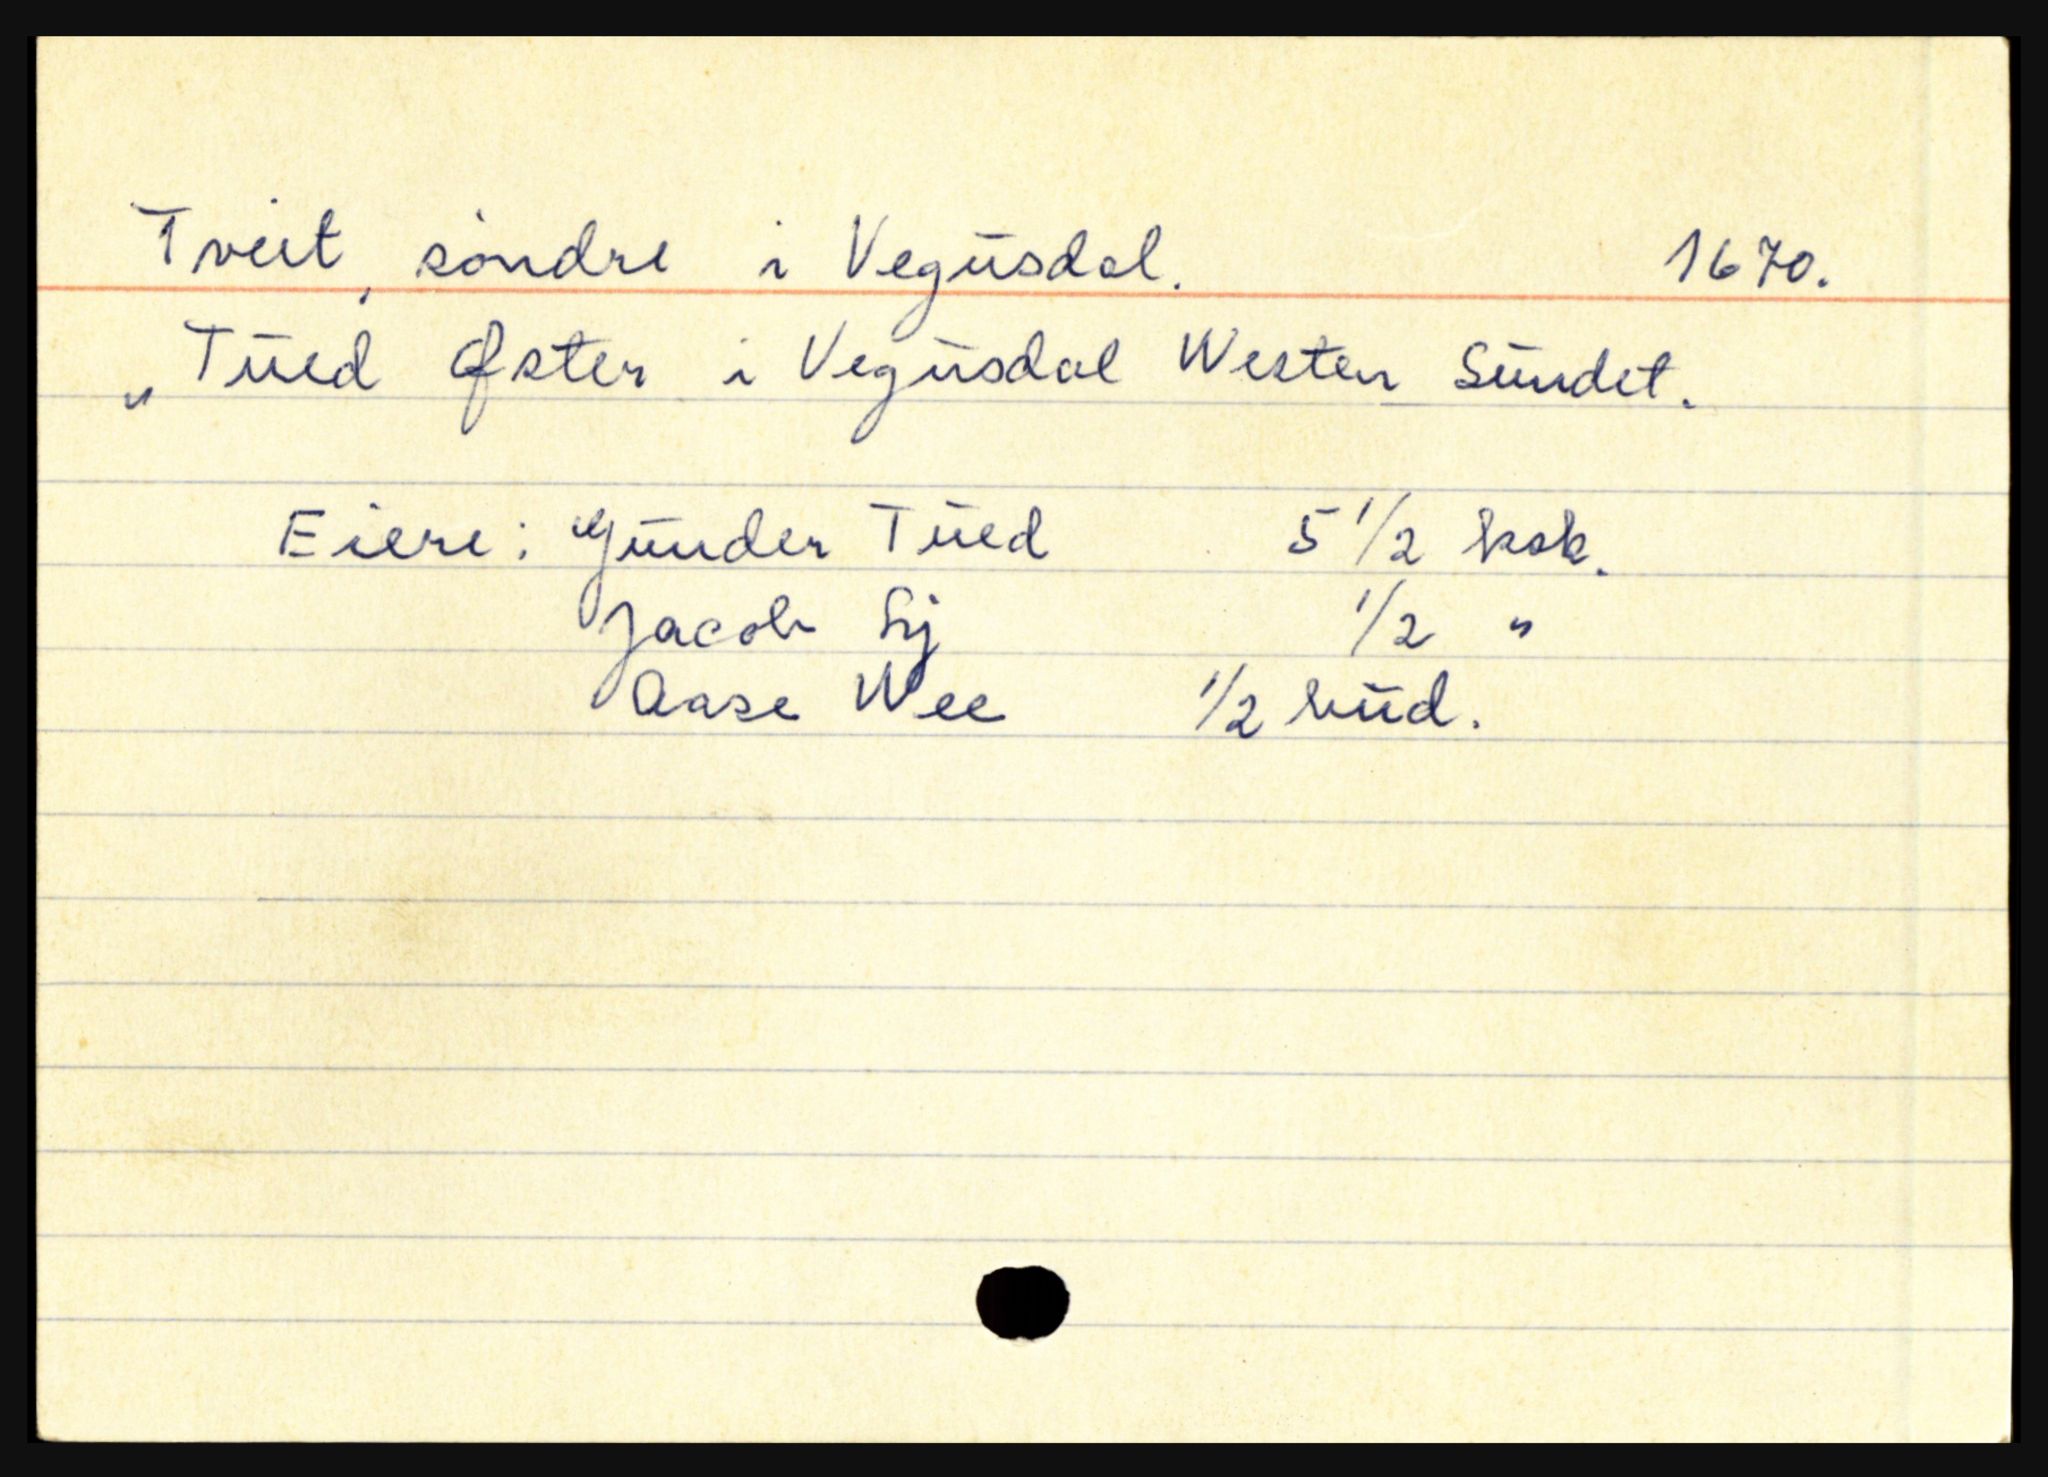 Tveit, søndre i Vegusdal. 1670.
„Tued Øster i Vegusdal Westen Sundet.
Eiere: Gunder Tued 5 1/2 ksk.
Jacob Lij 1/2 "
Aase Wee 1/2 hud.